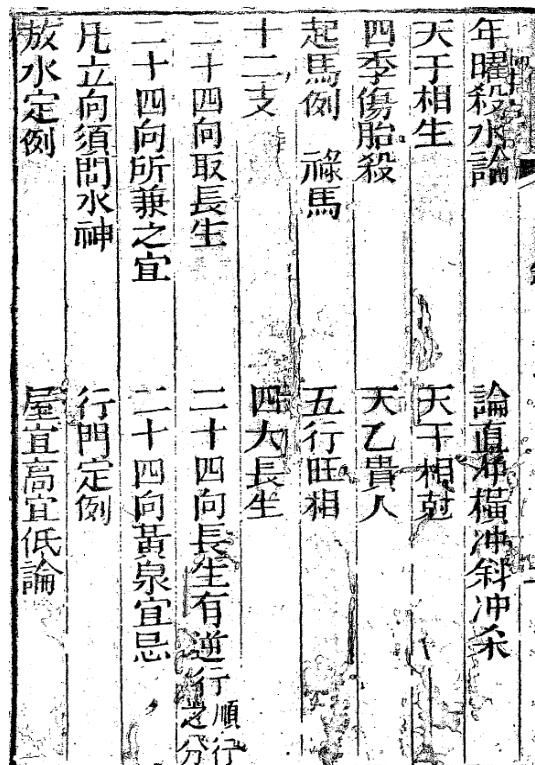 年曜殺水訣 論直冲橫冲斜冲杀
天干相生 天干相尅
四季傷胎殺 天乙貴人
起馬例 祿馬 五行旺相
十二支 四大長生
二十四向取長生 二十四向長生有逆行順行之分
二十四向所兼之宜 二十四向黃泉宜忌
凡立向須問水神 行門定例
放水定例 屋宜高宜低論